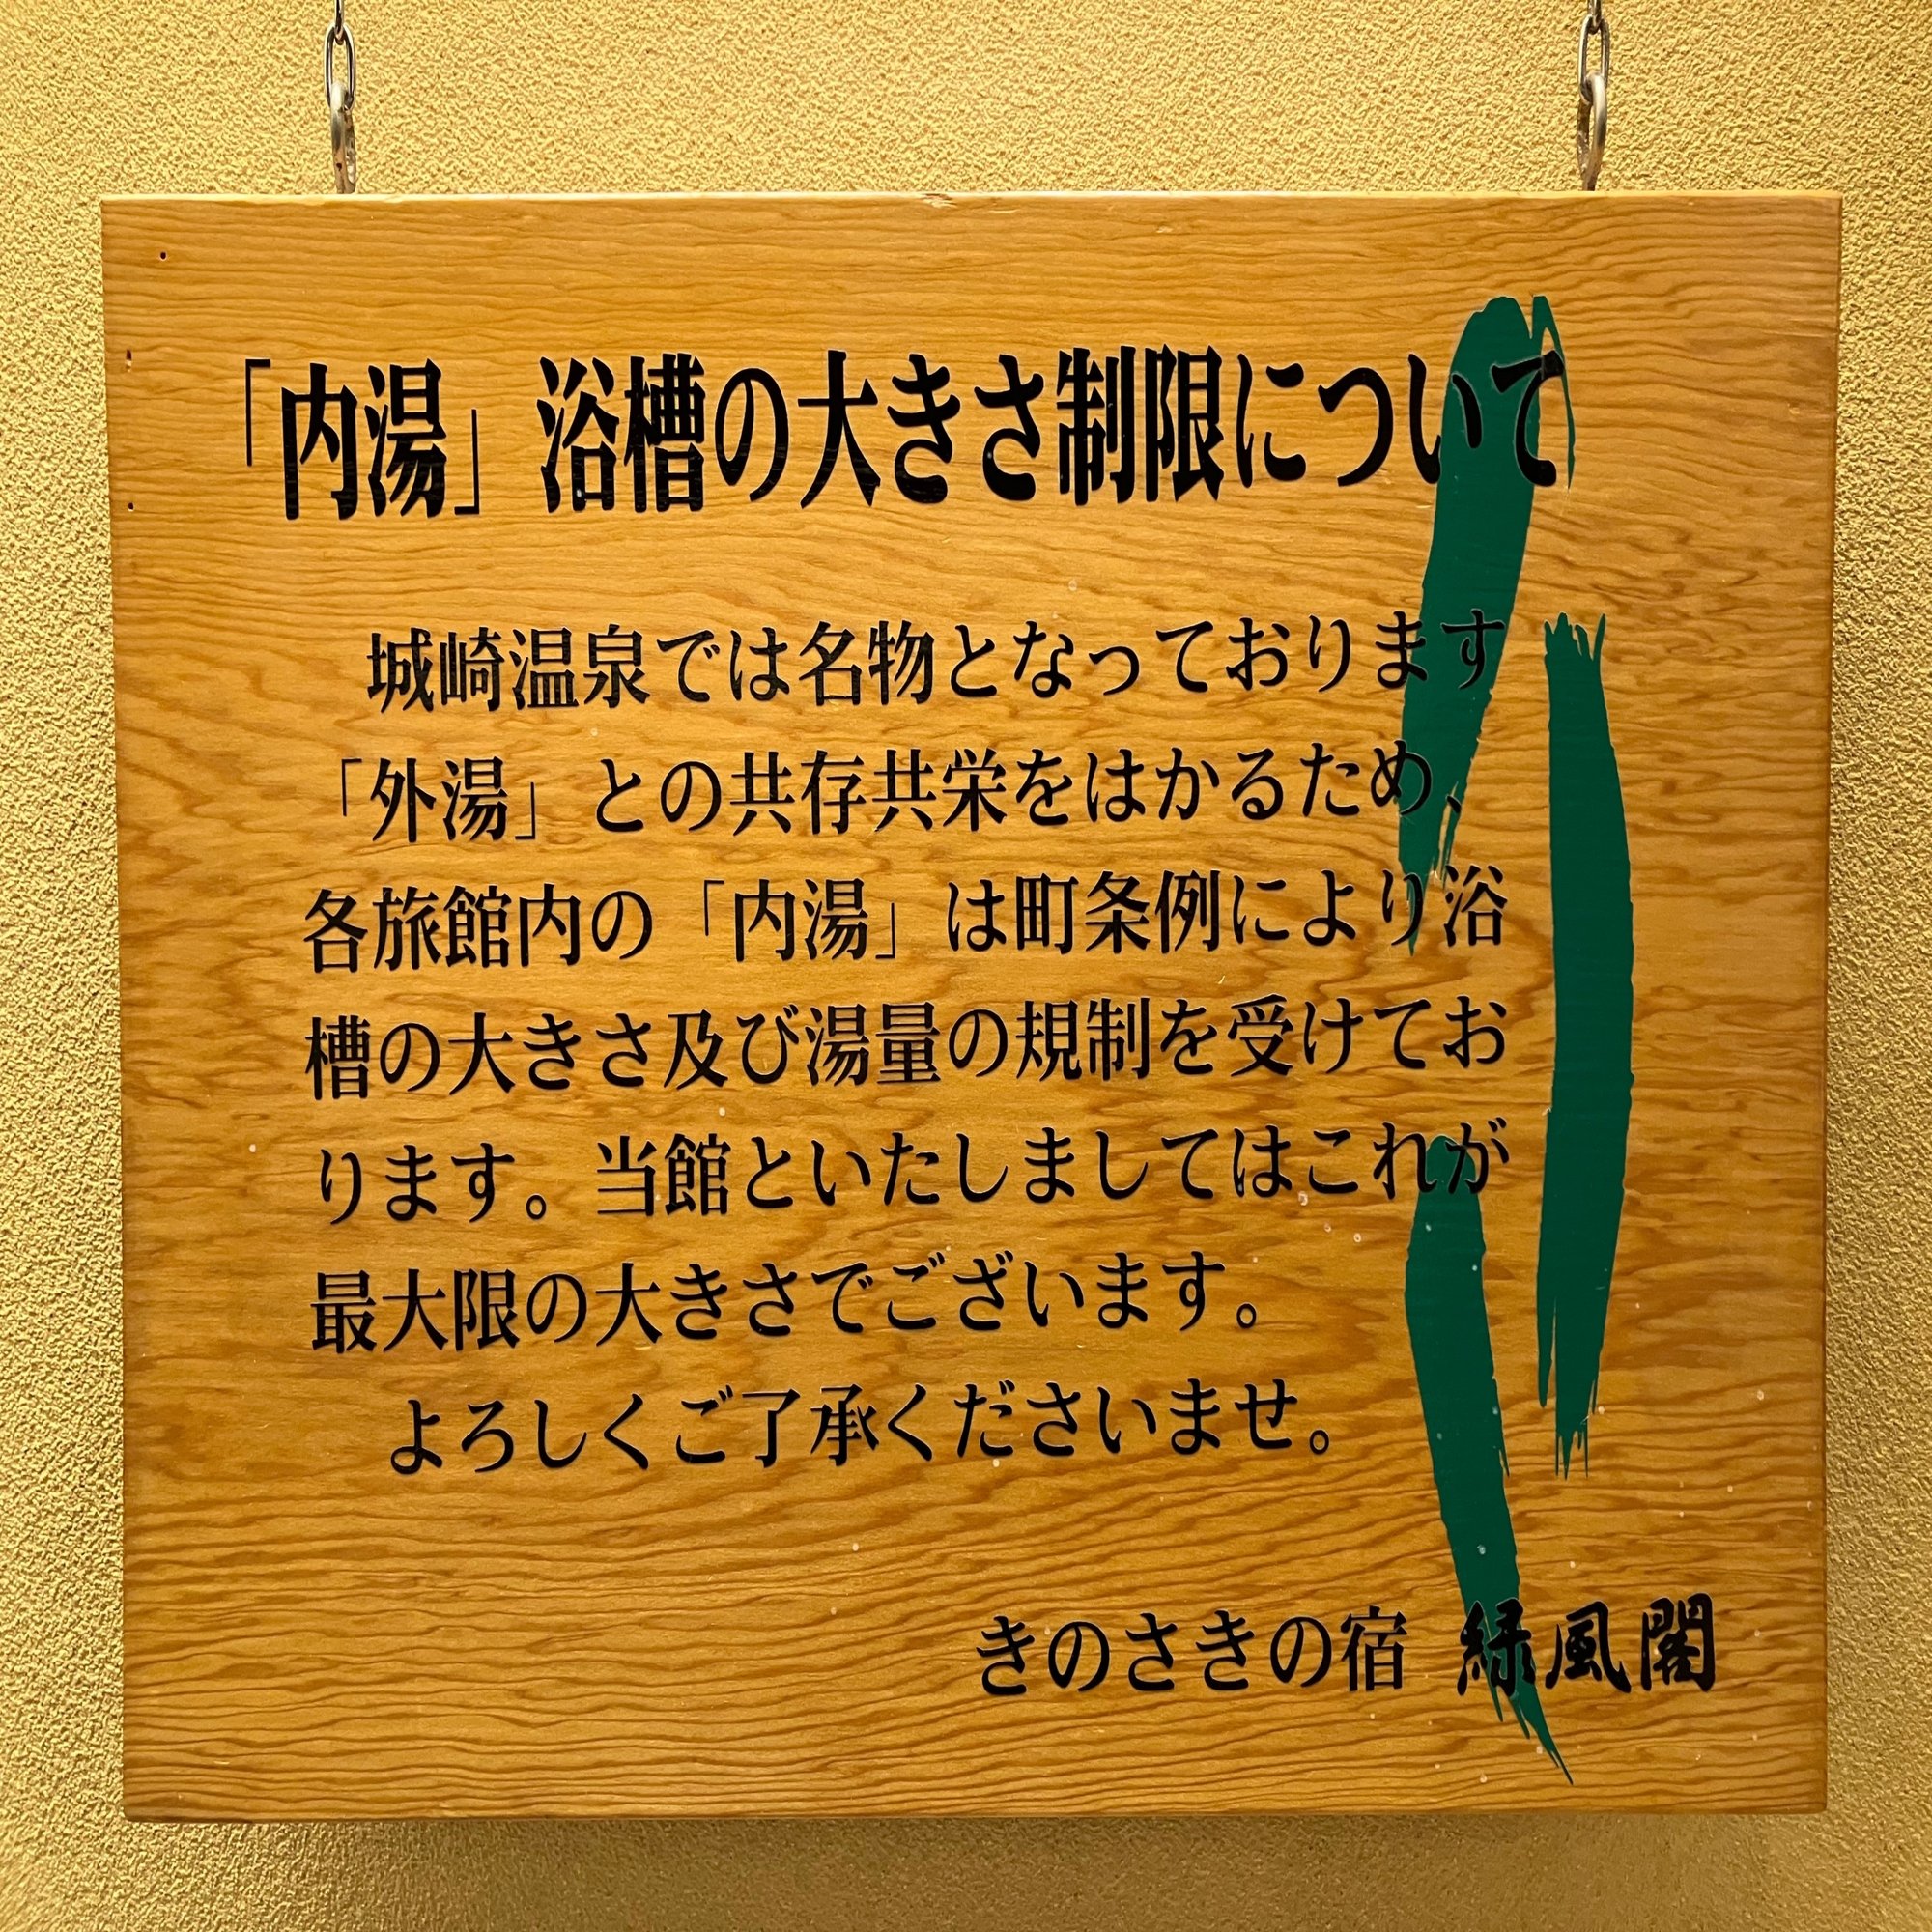 「内湯」浴槽の大きさ制限について
城崎温泉では名物となっております
「外湯」との共存共栄をはかるため、
各旅館内の「内湯」は町条例により浴
槽の大きさ及び湯量の規制を受けてお
ります。当館といたしましてはこれが
最大限の大きさでございます。
よろしくご了承くださいませ。
きのさきの宿 緑風閣